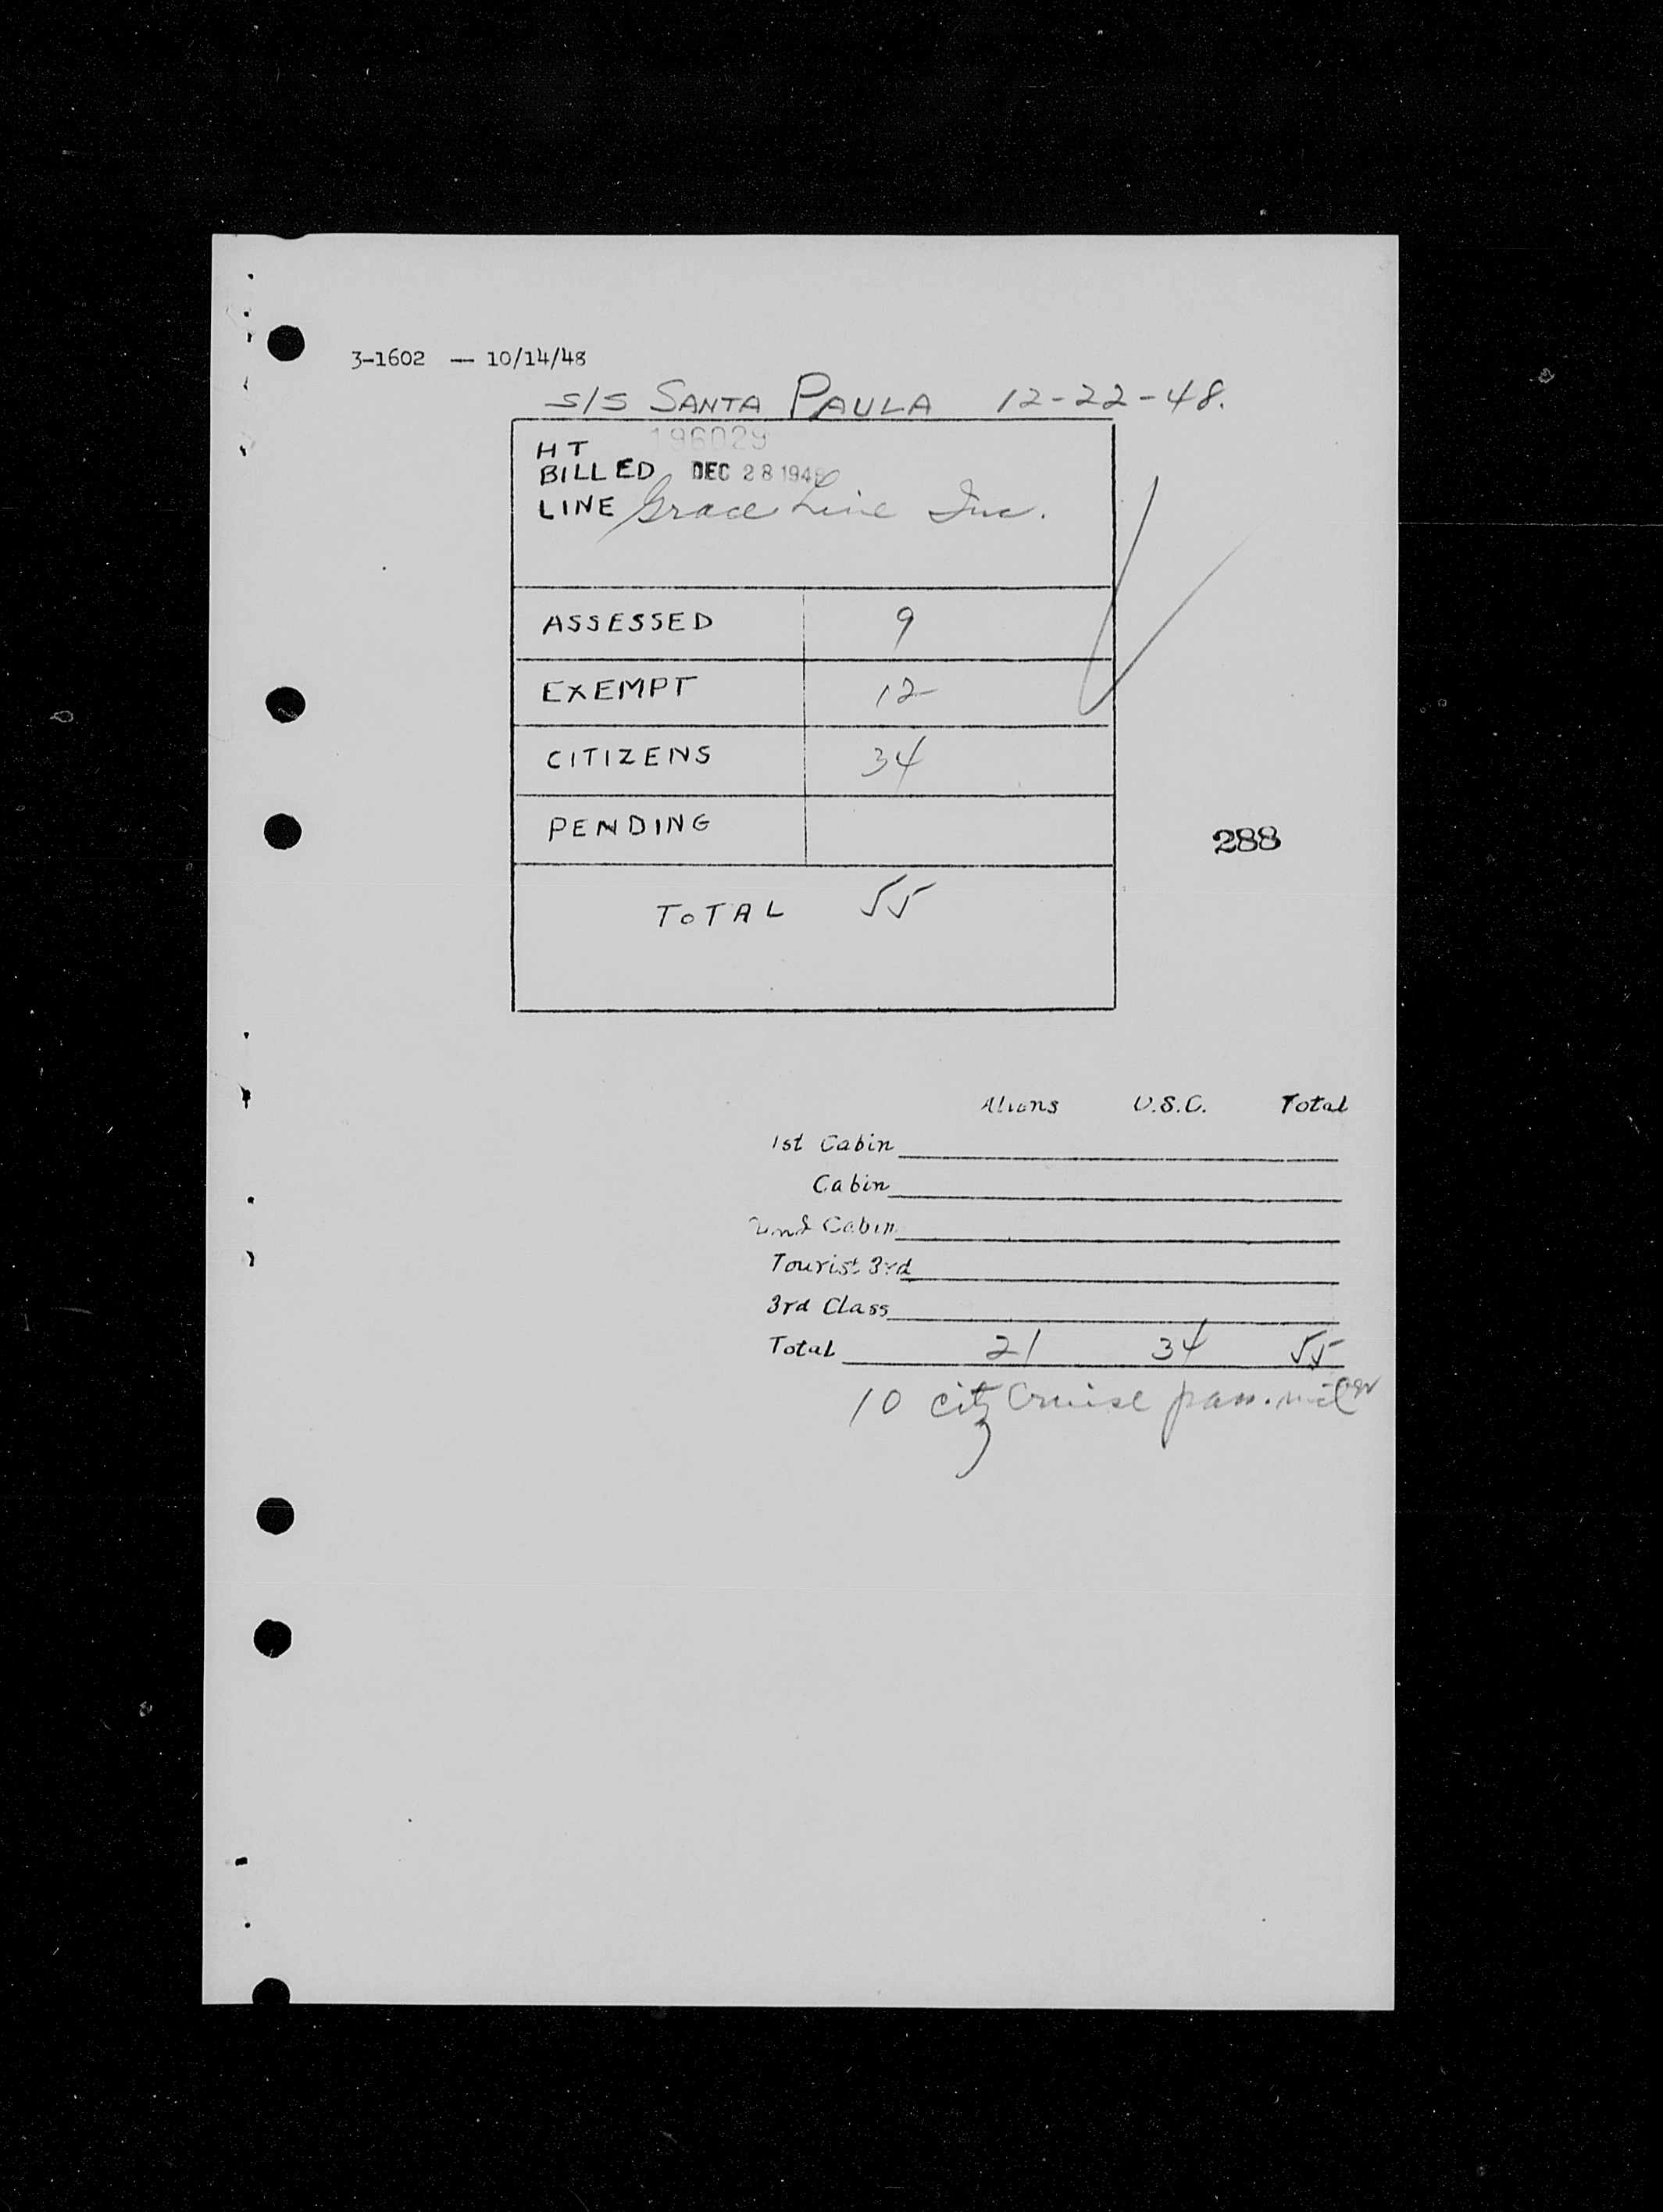 3-1602 — 10/14/48
S/S SANTA PAULA 12-22-48.
HT 196029
BILLED DEC 28 194
LINE Grace Line Inc.
ASSESSED 9
EXEMPT 12
CITIZENS 34
PENDING
288
TOTAL 55
Aliens U.S.C. Total
1st Cabin
Cabin
2nd Cabin
Tourist 3rd
3rd Class
Total 21 34 55
10 citz Cruise pass.